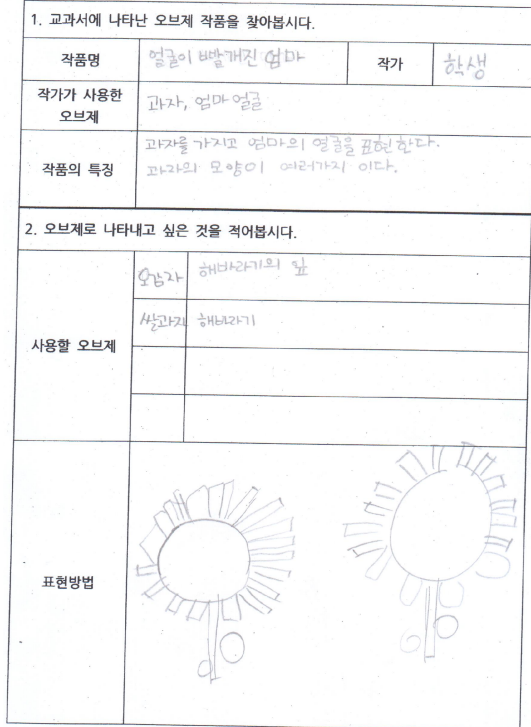 1. 교과서에 나타난 오브제 작품을 찾아봅시다.
작품명 얼굴이 빨개진 엄마 작가 학생
작가가 사용한 오브제 과자, 엄마 얼굴
작품의 특징
과자를 가지고 엄마의 얼굴을 표현한다.
과자의 모양이 여러가지 이다.
2. 오브제로 나타내고 싶은 것을 적어봅시다.
사용할 오브제
오감자 해바라기의 잎
쌀과자 해바라기
표현방법